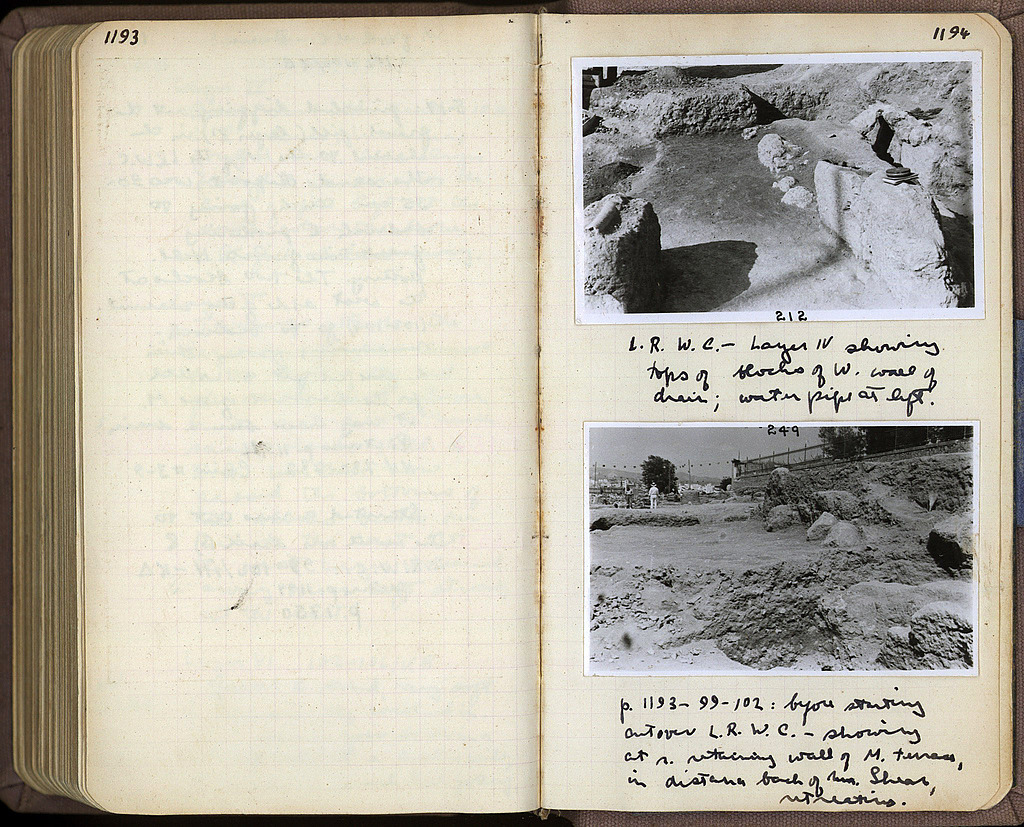 1193
1194
212
L. R. W. C. - Layer IV showing
tops of blocks of W. wall of
drain; water pipe at left.
249
p. 1193 - 99-102: before starting
cut over L. R. W. C. - showing
at r. retaining wall of M. terrace,
in distance back of Mrs. Shear,
retreating.